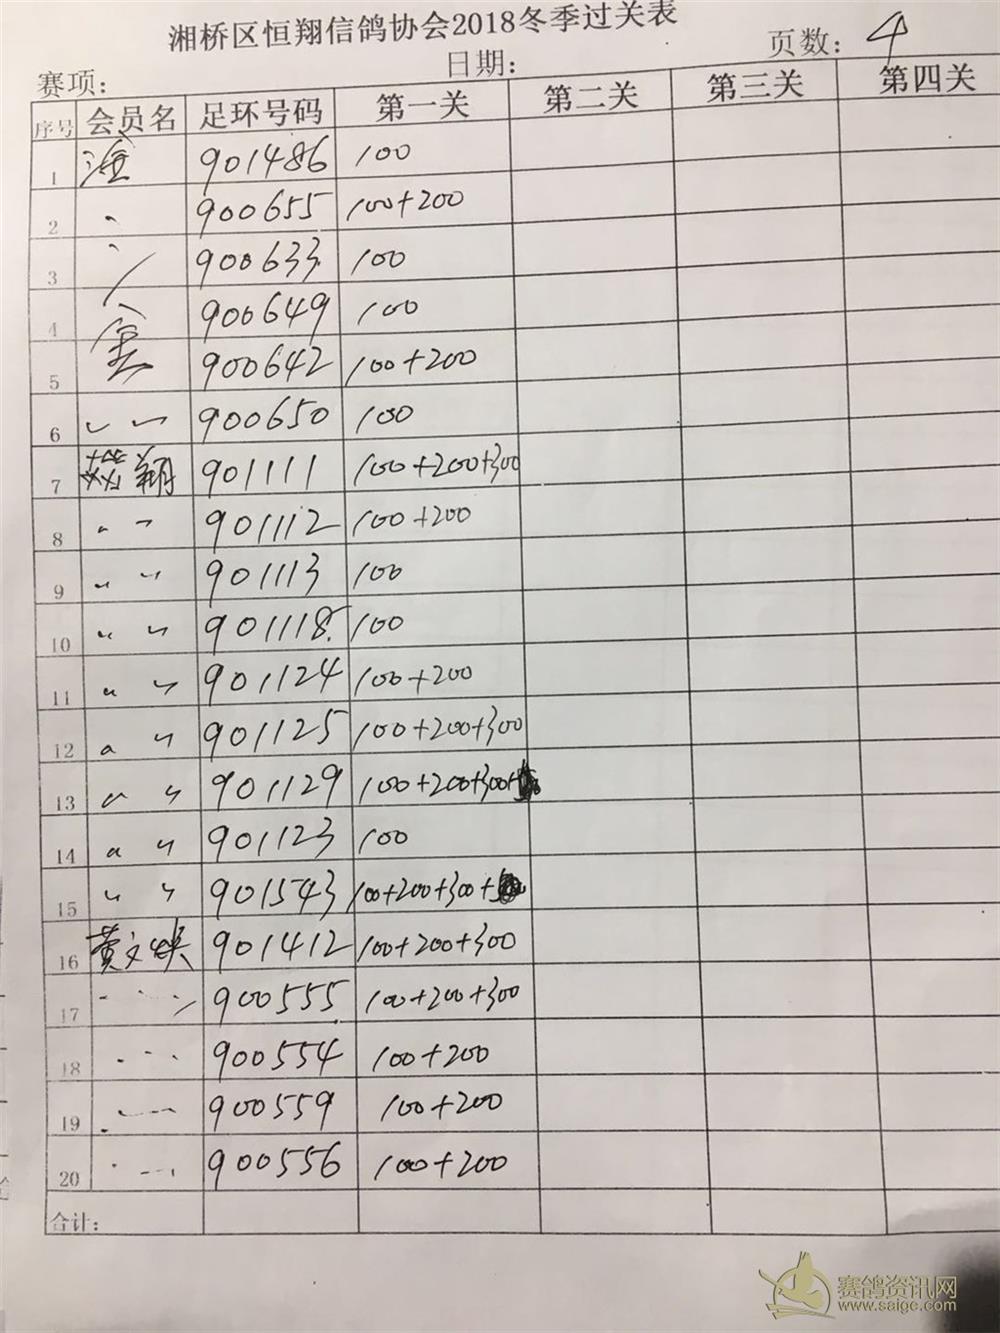 湘桥区恒翔信鸽协会2018冬季过关表
赛项: 日期: 页数: 4
序号 会员名 足环号码 第一关 第二关 第三关 第四关
1 901486 100
2 900655 100+200
3 900633 100
4 900649 100
5 900642 100+200
6 〃 〃 900650 100
7 翔 901111 100+200+300
8 〃 〃 901112 100+200
9 〃 〃 901113 100
10 〃 〃 901118 100
11 〃 〃 901124 100+200
12 〃 〃 901125 100+200+300
13 〃 〃 901129 100+200+300+
14 〃 〃 901123 100
15 〃 〃 901543 100+200+300+
16 黄文焕 901412 100+200+300
17 900555 100+200+300
18 900554 100+200
19 900559 100+200
20 900556 100+200
合计:
赛鸽资讯网
www.saige.com